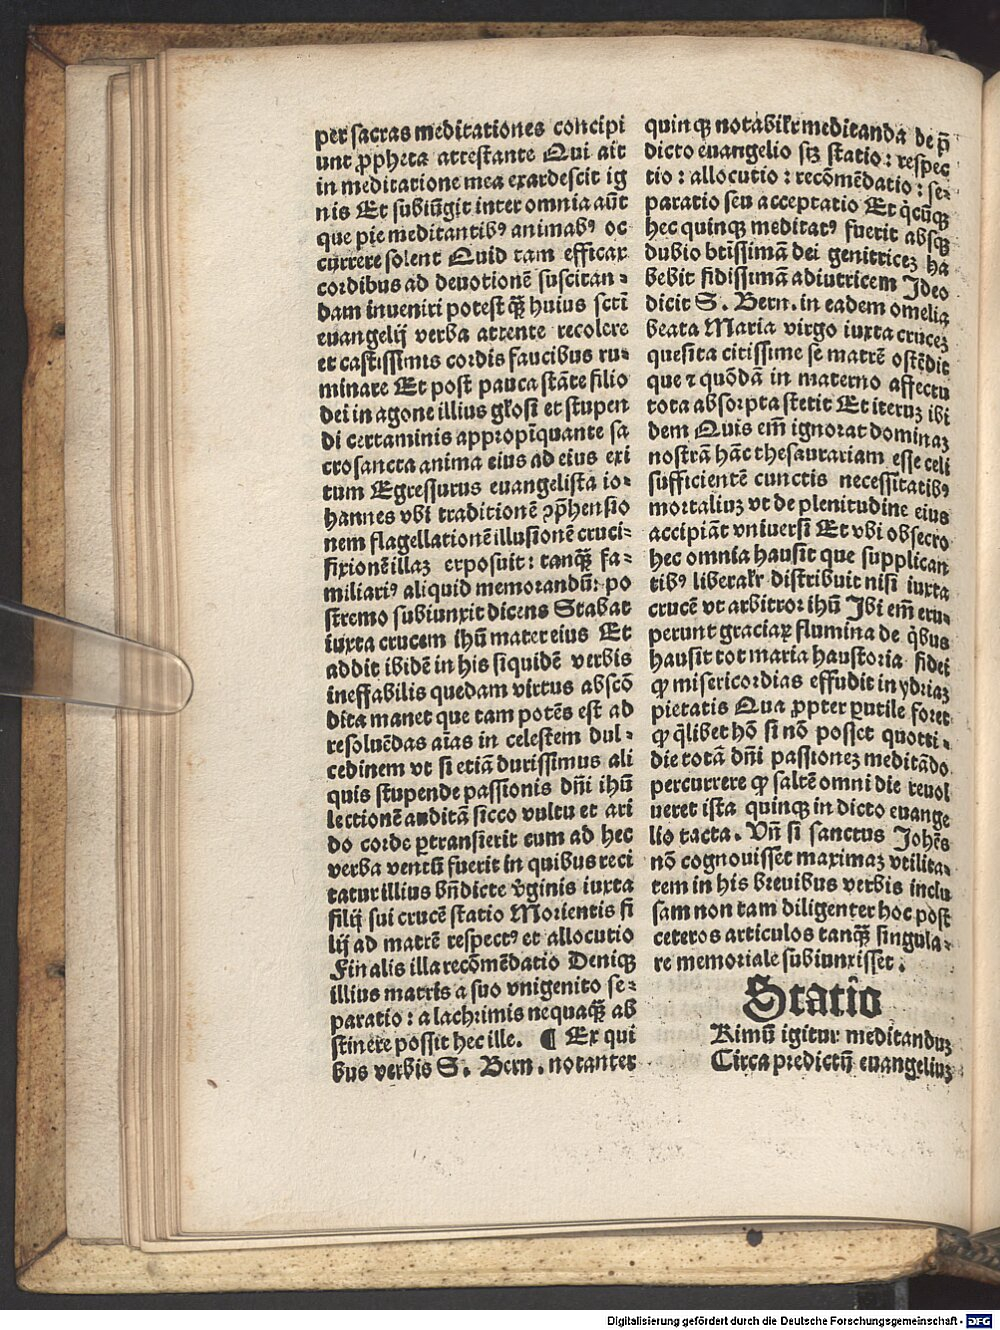 per sacras meditationes concipi
unt ꝓpheta attestante Qui ait
in meditatione mea exardescit ig
nis Et subiūgit inter omnia aūt
que pie meditantibꝰ animabꝰ oc
currere solent Quid tam efficax
cordibus ad deuotionē suscitan⸗
dam inueniri potest qꝫ̄ huius scti̅
euangelij verba attente recolere
et castissimis cordis faucibus ru⸗
minare Et post pauca stāte filio
dei in agone illius gl'osi et stupen
di certaminis appropīquante sa
crosancta anima eius ad eius exi
tum Egressurus euangelista io⸗
hannes vbi traditionē ꝯp̄hensio
nem flagellationē illusionē cruci⸗
fixionē illaꝫ exposuit: tanqꝫ̄ fa⸗
miliariꝰ aliquid memorandū: po
stremo subiunxit dicens Stabat
iuxta crucem ihū mater eius Et
addit ibidē in his siquidē verbis
ineffabilis quedam virtus abscō
dita manet que tam potēs est ad
resoluēdas aīas in celestem dul⸗
cedinem vt si etiā durissimus ali
quis stupende passionis dn̄i ihū
lectionē auditā sicco vultu et ari
do corde ꝑtransierit cum ad hec
verba ventū fuerit in quibus reci
tatur illius bn̄dicte v̓ginis iuxta
filij sui crucē statio Morientis fi
lij ad matrē respectꝰ et allocutio
Finalis illa recōmēdatio Deniqꝫ
illius matris a suo vnigenito se⸗
paratio: a lachrimis nequaqꝫ̄ ab
stinere possit hec ille. ¶ Ex qui
bus verbis S. Bern. notanter
quinqꝫ notabilr̄ meditanda de p̄
dicto euangelio sꝫ statio: respec
tio: allocutio: recōmēdatio: se⸗
paratio seu acceptatio Et q̇cūqꝫ
hec quinqꝫ meditatꝰ fuerit absqꝫ
dubio btīssimā dei genitriceꝫ ha
bebit fidissimā adiutricem Ideo
dicit S. Bern. in eadem omelia
beata Maria virgo iuxta cruceꝫ
quesita citissime se matrē ostēdit
que ⁊ quōdā in materno affectu
tota absorpta stetit Et iteruꝫ ibi
dem Quis em̄ ignorat dominaꝫ
nostrā hāc thesaurariam esse celi
sufficientē cunctis necessitatibꝰ
mortaliuꝫ vt de plenitudine eius
accipiāt vniuersi Et vbi obsecro
hec omnia hausit que supplican
tibꝰ liberalr̄ distribuit nisi iuxta
crucē vt arbitror ihū Ibi em̄ eru⸗
perunt graciaꝝ flumina de q̇bus
hausit tot maria haustoria fidei
ꝙ misericordias effudit in ydriaꝫ
pietatis Qua ꝓpter ꝑutile foret
ꝙ q̇libet hō si nō posset quotti⸗
die totā dn̄i passioneꝫ meditādo
percurrere ꝙ saltē omni die reuol
ueret ista quinqꝫ in dicto euange
lio tacta. Vn̄ si sanctus Johēs
nō cognouisset maximaꝫ vtilita⸗
tem in his breuibus verbis inclu
sam non tam diligenter hoc post
ceteros articulos tanqꝫ̄ singula⸗
re memoriale subiunxisset.
Statio
Rimū igitur meditanduꝫ
Circa predictū euangeliuꝫ
Digitalisierung gefördert durch die Deutsche Forschungsgemeinschaft - DFG